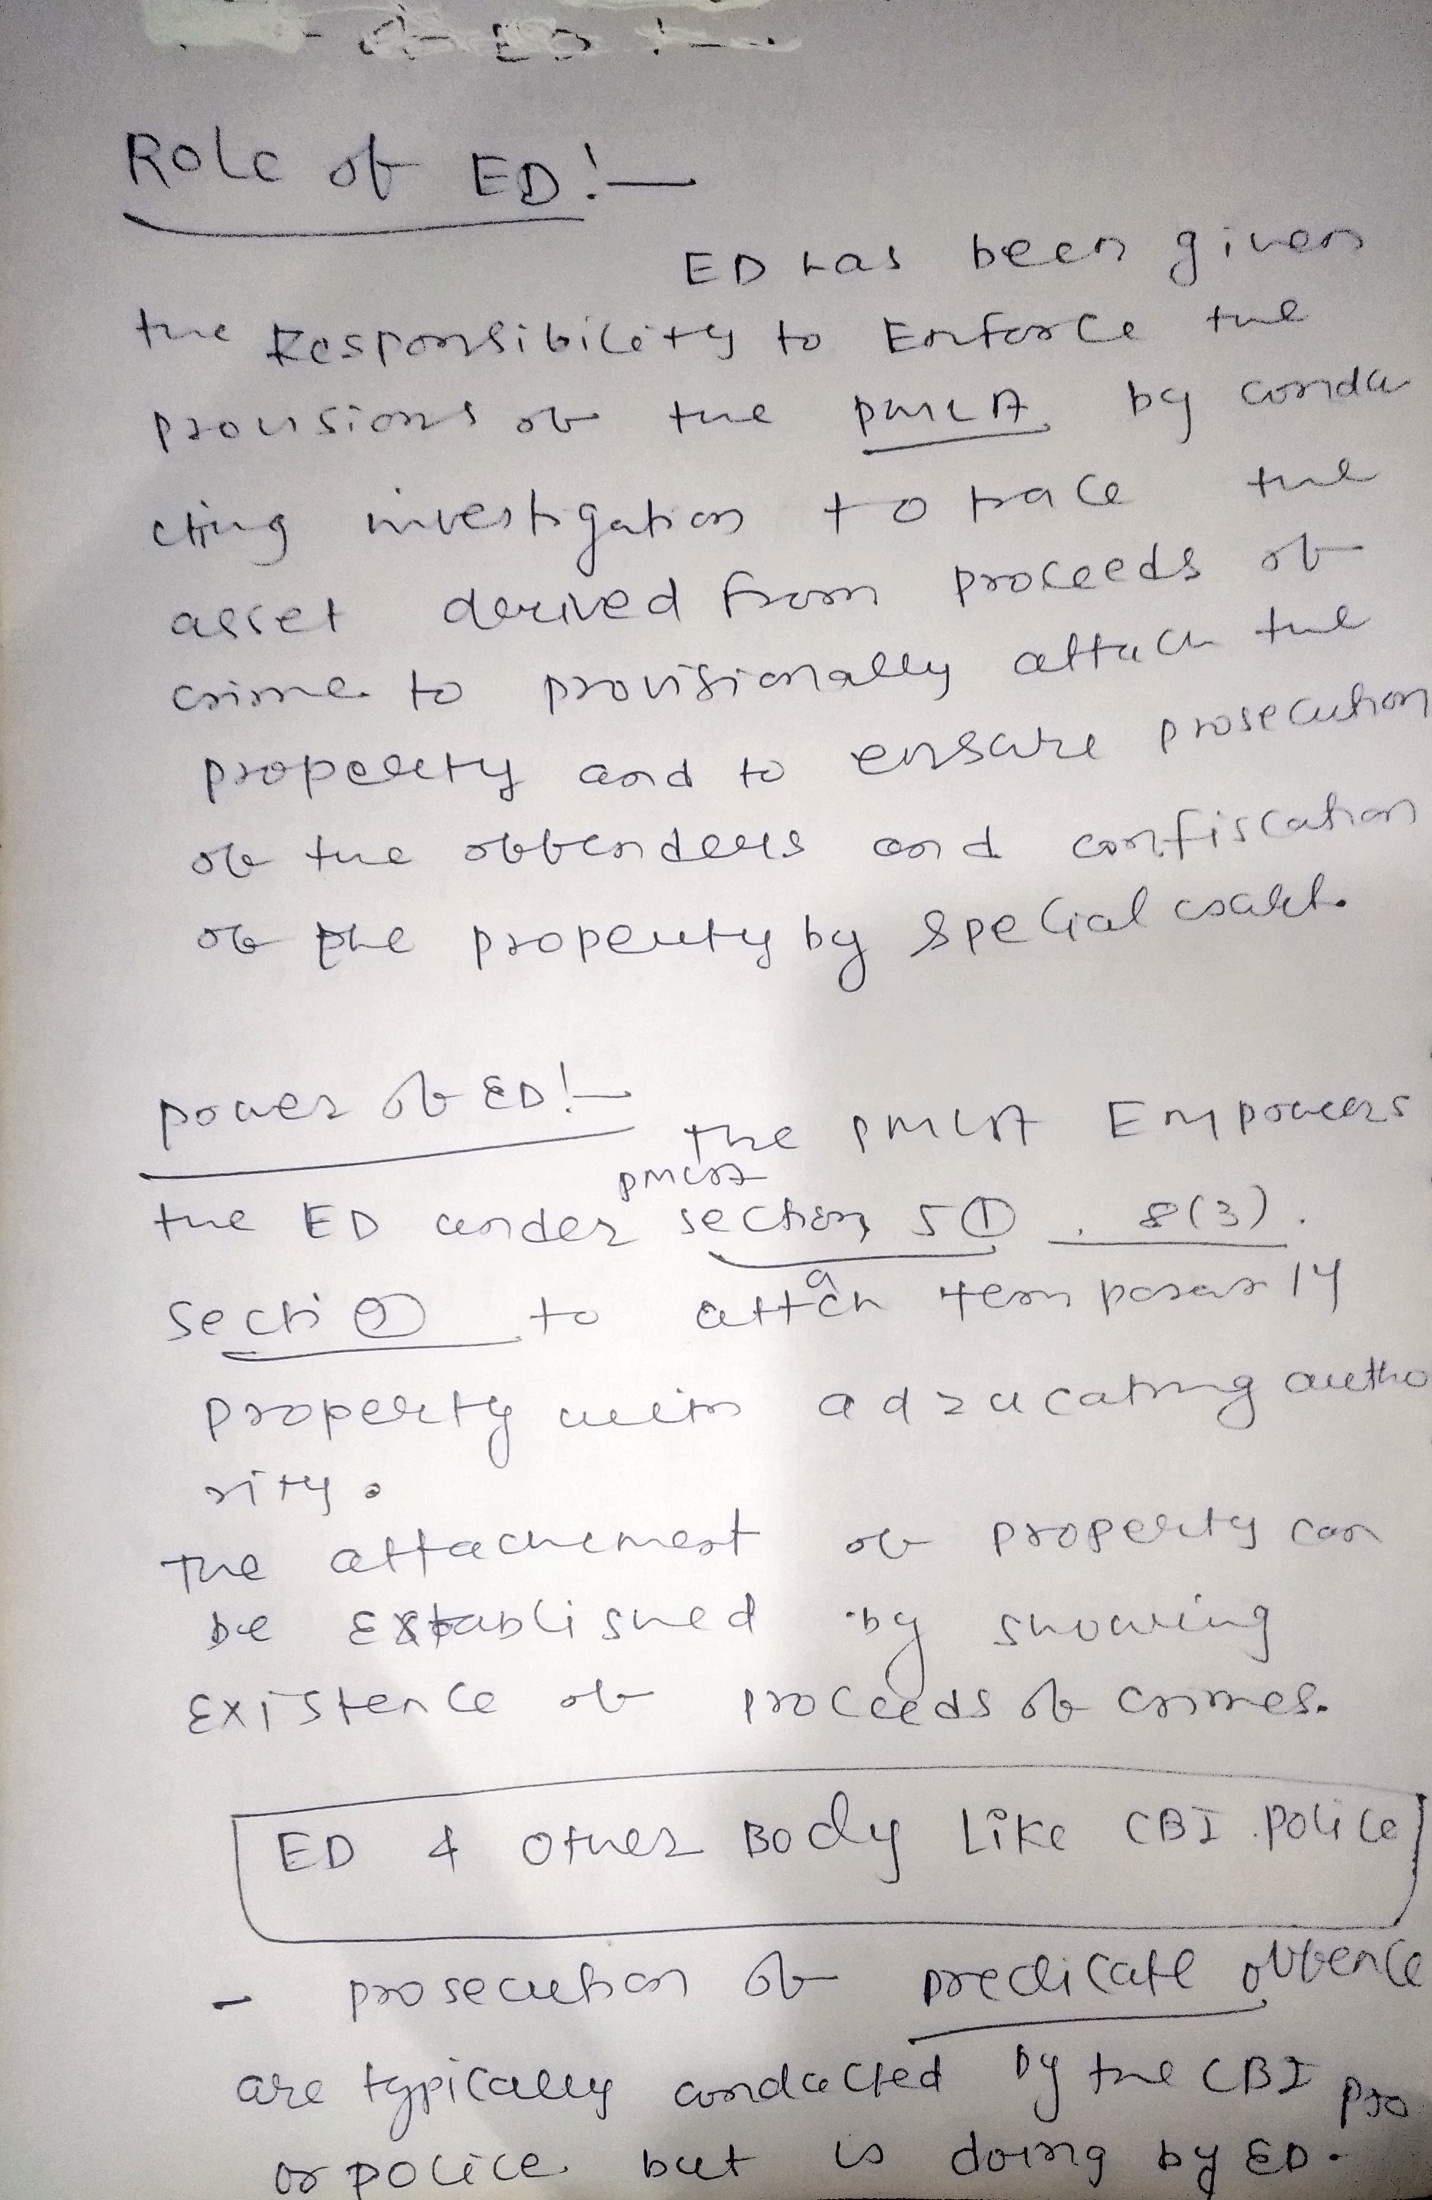 ED :-
Role of ED :-
ED has been given
the Responsibility to Enforce the
provisions of the PMLA by condu
cting investigation to trace the
asset derived from proceeds of
crime to provisionally attach the
property and to ensure prosecution
of the offenders and confiscation
of the property by special court.
power of ED :-
the PMLA Empowers
PMLA
the ED under section 5(1), 8(3).
Secti to attach temporarly
property with adzucating autho
rity.
The attachement of property can
be Established by showing
Existence of proceeds of crimes.
ED & Other Body Like CBI. police
- prosecution of predicate offence
are typically conducted by the CBI
or police but is doing by ED.
pro